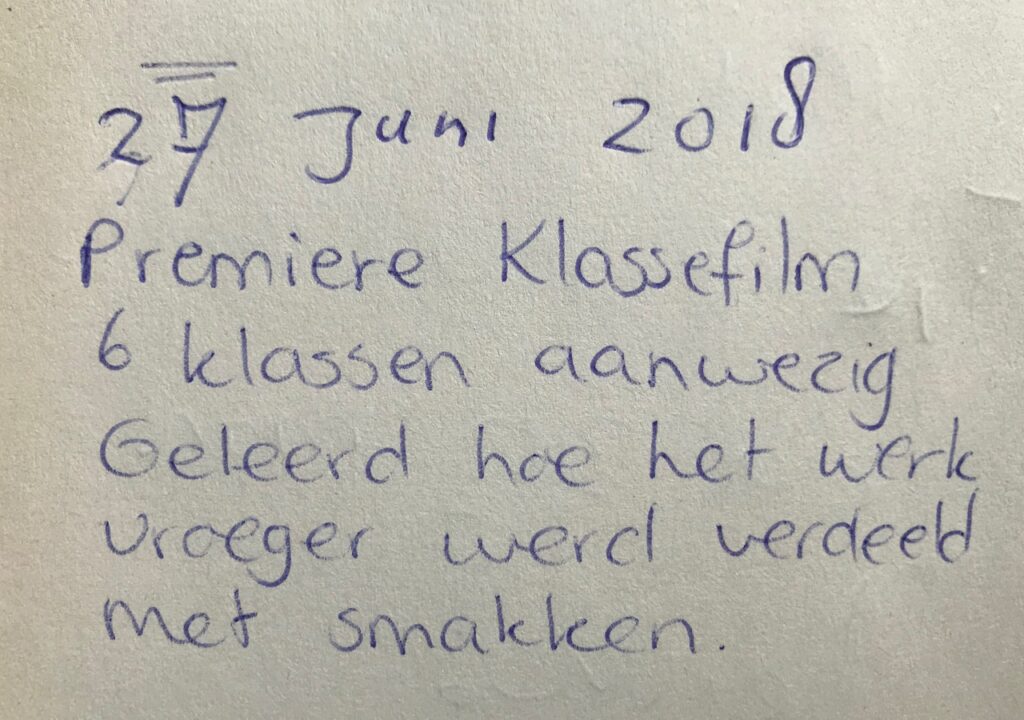 27 Juni 2018
Premiere Klassefilm
6 klassen aanwezig
Geleerd hoe het werk
vroeger werd verdeeld
met smakken.